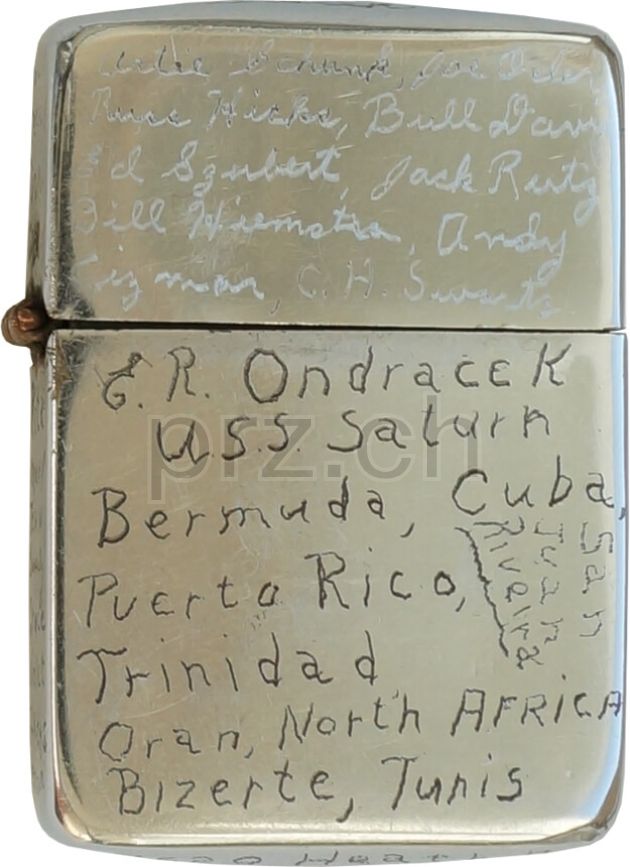 Schunk, Joe
Russ Hicks, Bull Davis
Ed Szubert, Jack Rutz
Bill Hiemstra, Andy
C. H. Swartz
E. R. Ondracek
U.S.S. Saturn
Bermuda, Cuba,
San
Juan
Puerto Rico,
Trinidad
Oran, North AFRICA
Bizerte, Tunis
prz.ch